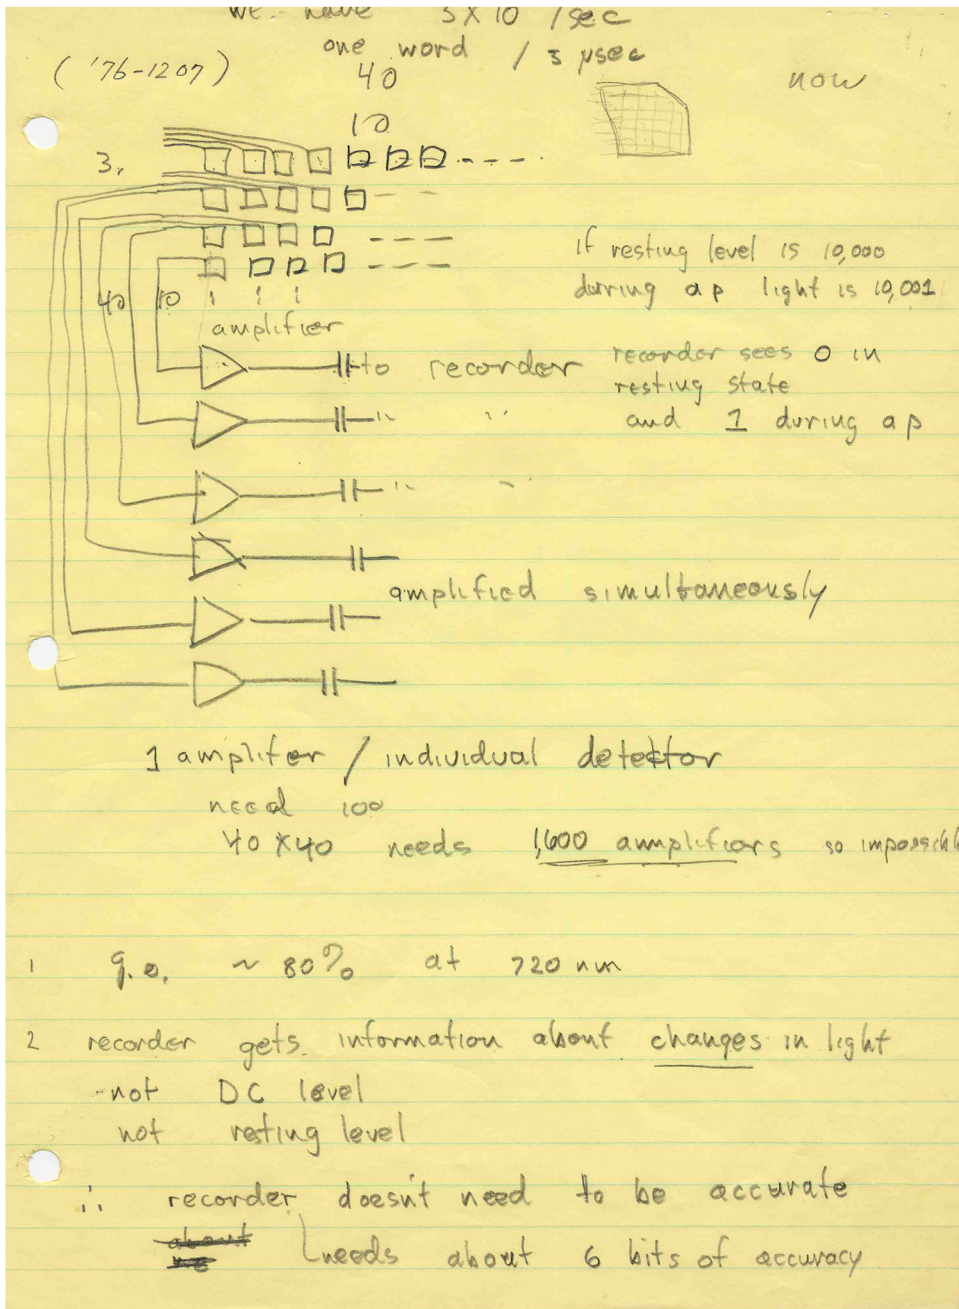 we have 3 x 10 /sec
one word / 3 µsec
('76-1207)
40
now
10
3.
if resting level is 10,000
durring a p light is 10,001
40 10
amplifier
to recorder
recorder sees 0 in
resting state
and 1 during a p
amplified simultaneously
1 amplifer / individual detector
need 100
40 x 40 needs 1,600 ampplifiers so impossibl
1 q.e. ~ 80% at 720 nm
2 recorder gets information about changes in light
-not DC level
not resting level
∴ recorder doesn't need to be accurate
about
ne
needs about 6 bits of accuracy